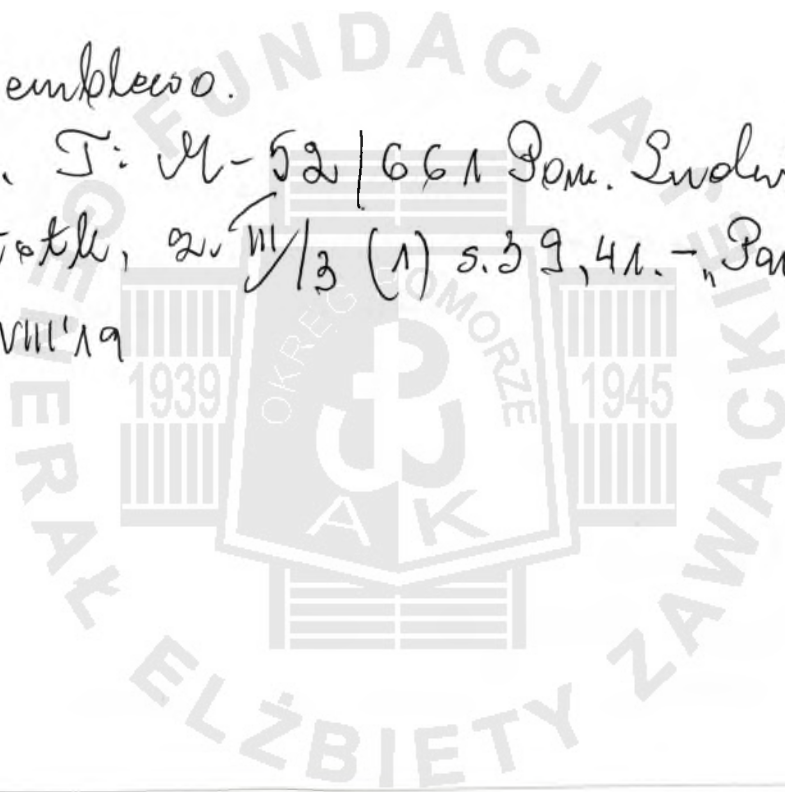 emblewo.
. T: M-52/661 Pom.
z. VIII/3 (1) s.39,41.-„Pa
VIII'19
FUNDACJA
GENERAŁ ELŻBIETY ZAWACKIEJ
OKRĘG POMORZE
1939
1945
AK